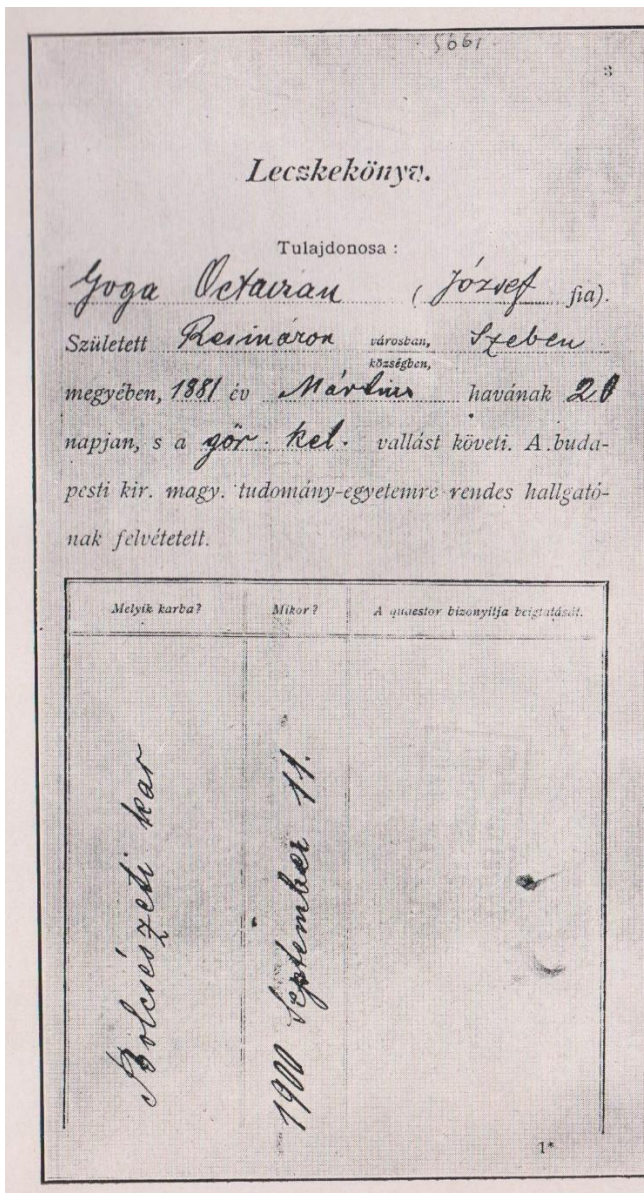 5661
3
Leczkekönyv.
Tulajdonosa :
Goga Octavian ( József fia).
Született Resinaron városban, községben, Szeben
megyében, 1881 év Mártius havának 20
napjan, s a gör. kel. vallást követi. A buda-
pesti kir. magy. tudomány-egyetemre rendes hallgató-
nak felvétetett.
Melyik karba? Mikor? A quaestor bizonyitja beigtatását.
Bölcsészeti kar
1900 September 11.
1*